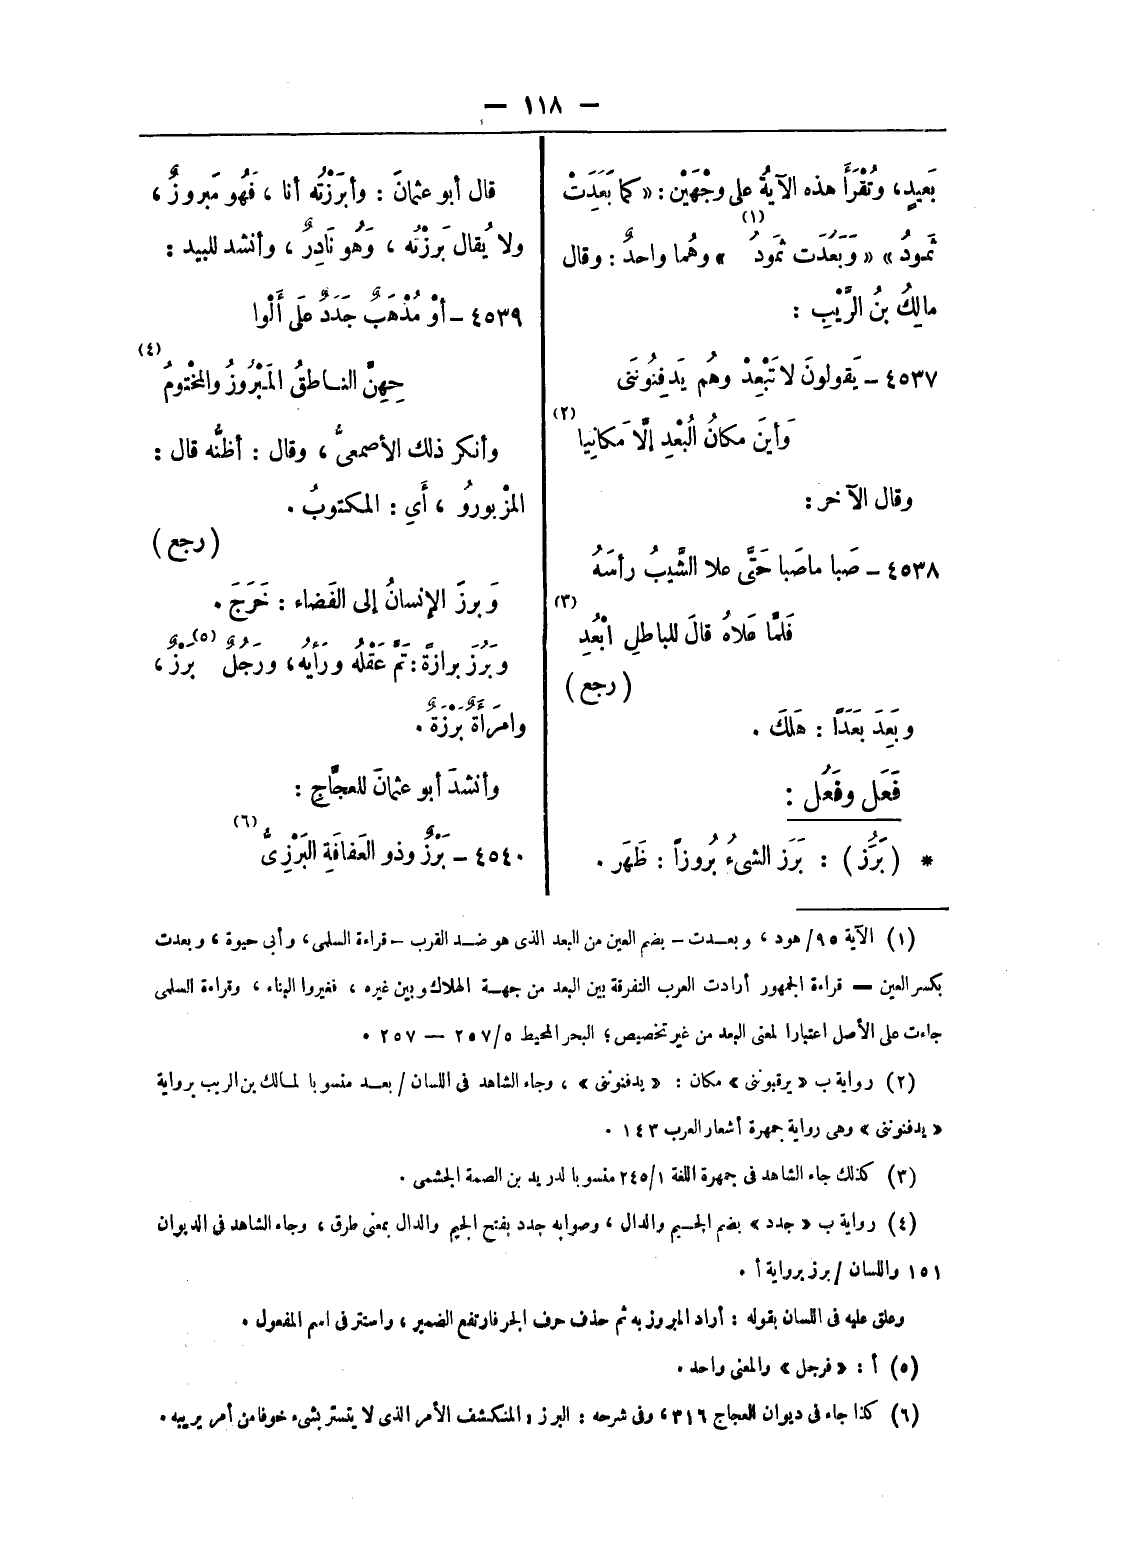 — ١١٨ —
بَعيدٍ، وتُقْرَأَ هذه الآيةُ على وجْهَيْن : « كما بَعَدَتْ
ثَمودُ » « وَبَعُدَت ثَمودُ (١) » وهُما واحدٌ : وقال
مالِكُ بنُ الرَّيْبِ :
٤٥٣٧ – يَقولونَ لا تَبْعِدْ وهُم يَدفِنُونَنى
وَأينَ مكانُ البُعْدِ إلَّا مَكانِيا (٢)
وقال الآخر :
٤٥٣٨ – صَبا ماصَبا حَتَّى علا الشَّيبُ رأسَهُ
فَلمَّا عَلاهُ قالَ للباطلِ ابْعُدِ (٣)
( رجع )
وبَعِدَ بَعَدًا : هَلكَ .
فَعَل وفَعُل :
* ( بَرُز ) : بَرَز الشىءُ بُروزاً : ظَهَر .
قال أبو عثمانَ : وأبرَزْتُه أنا ، فَهُو مَبروزٌ ،
ولا يُقال بَرزْتُه ، وَهُو نَادِرٌ ، وأنشد للبيد :
٤٥٣٩ – أوْ مُذْهَبٌ جَدَدٌ عَلَى أَلْوا
حِهِنَّ الناطقُ المَبْرُوزُ والمخْتومُ (٤)
وأنكر ذلك الأصمعىُّ ، وقال : أظنُّه قال :
المزْبورُو ، أَىِ : المكتوبُ .
( رجع )
وَبرزَ الإنسانُ إلى الفَضاء : خَرَجَ .
وبَرُزَ برازةً : تَمَّ عَقْلُه ورأيُه، ورَجُلٌ (٥) بَرْزٌ ،
وامرَأَةٌ بَرْزَةٌ .
وأنشدَ أبو عثمانَ للعجَّاجِ :
٤٥٤٠ – بَرْزٌ وذو العَفافَةِ البَرْزِىُّ (٦)
(١) الآية ٩٥/ هود ، وبعدت – بضم العين من البعد الذى هو ضد القرب – قراءة السلمى، وأبى حيوة ، وبعدت
بكسر العين — قراءة الجمهور أرادت العرب التفرقة بين البعد من جهة الهلاك وبين غيره ، فغيروا البناء ، وقراءة السلمى
جاءت على الأصل اعتبارا لمعنى البعد من غير تخصيص ؛ البحر المحيط ٢٥٧/٥ — ٢٥٧ .
(٢) رواية ب « يرقبوننى » مكان : « يدفنوننى » ، وجاء الشاهد فى اللسان / بعد منسوبا لمالك بن الريب برواية
« يدفنوننى » وهى رواية جمهرة أشعار العرب ١٤٣ .
(٣) كذلك جاء الشاهد فى جمهرة اللغة ٢٤٥/١ منسوبا لدريد بن الصمة الجشمى .
(٤) رواية ب « جدد » بضم الجيم والدال ، وصوابه جدد بفتح الجيم والدال بمعنى طرق ، وجاء الشاهد فى الديوان
١٥١ واللسان / برز برواية أ .
وعلق عليه فى اللسان بقوله : أراد المبروز به ثم حذف حرف الجر فارتفع الضمير ، واستتر فى اسم المفعول .
(٥) أ : « فرجل » والمعنى واحد .
(٦) كذا جاء فى ديوان العجاج ٣١٦، وفى شرحه : البرز : المنكشف الأمر الذى لا يتستر بشىء خوفا من أمر يريبه .